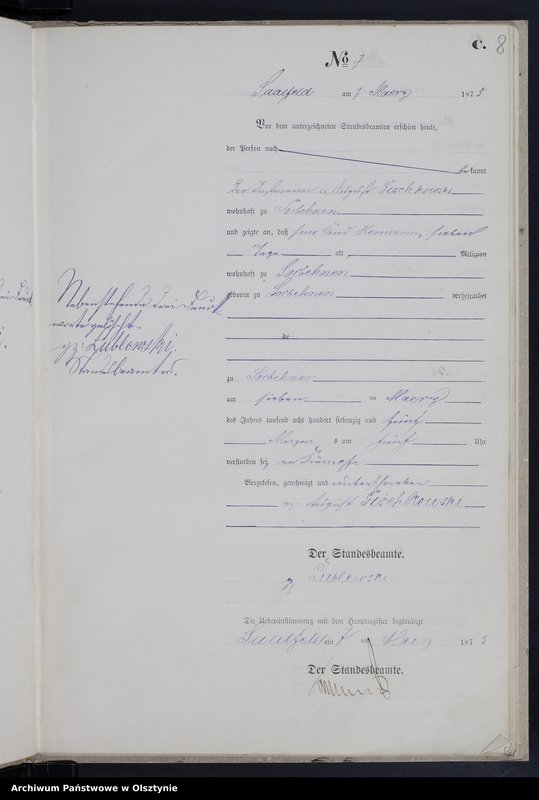 C. 8
No 7
Saalfeld am 7 Maerz 1875
Vor dem unterzeichneten Standesbeamten erschien heute,
der Person nach
bekannt
der Instmann August Zeschkowski
wohnhaft zu Sorbehnen
und zeigte an, daß sein Kind Hermann, sieben
Tage alt, Religion
wohnhaft zu Sorbehnen
geboren zu Sorbehnen verheirathet
Nebenstehende drei Druck
worte gelöscht.
gz: Lublewski,
Standesbeamter.
de
zu Sorbehnen
am sieben ten Maerz
des Jahres tausend acht hundert siebenzig und fünf
Morgens um fünf Uhr
verstorben sei, an Krämpfe
Vorgelesen, genehmigt und unterschrieben
gz August Zeschkowski
Der Standesbeamte.
gz Lublewski
Die Uebereinstimmung mit dem Hauptregister beglaubigt
Saalfeld am 7 ten Maerz 1875
Der Standesbeamte.
Archiwum Państwowe w Olsztynie